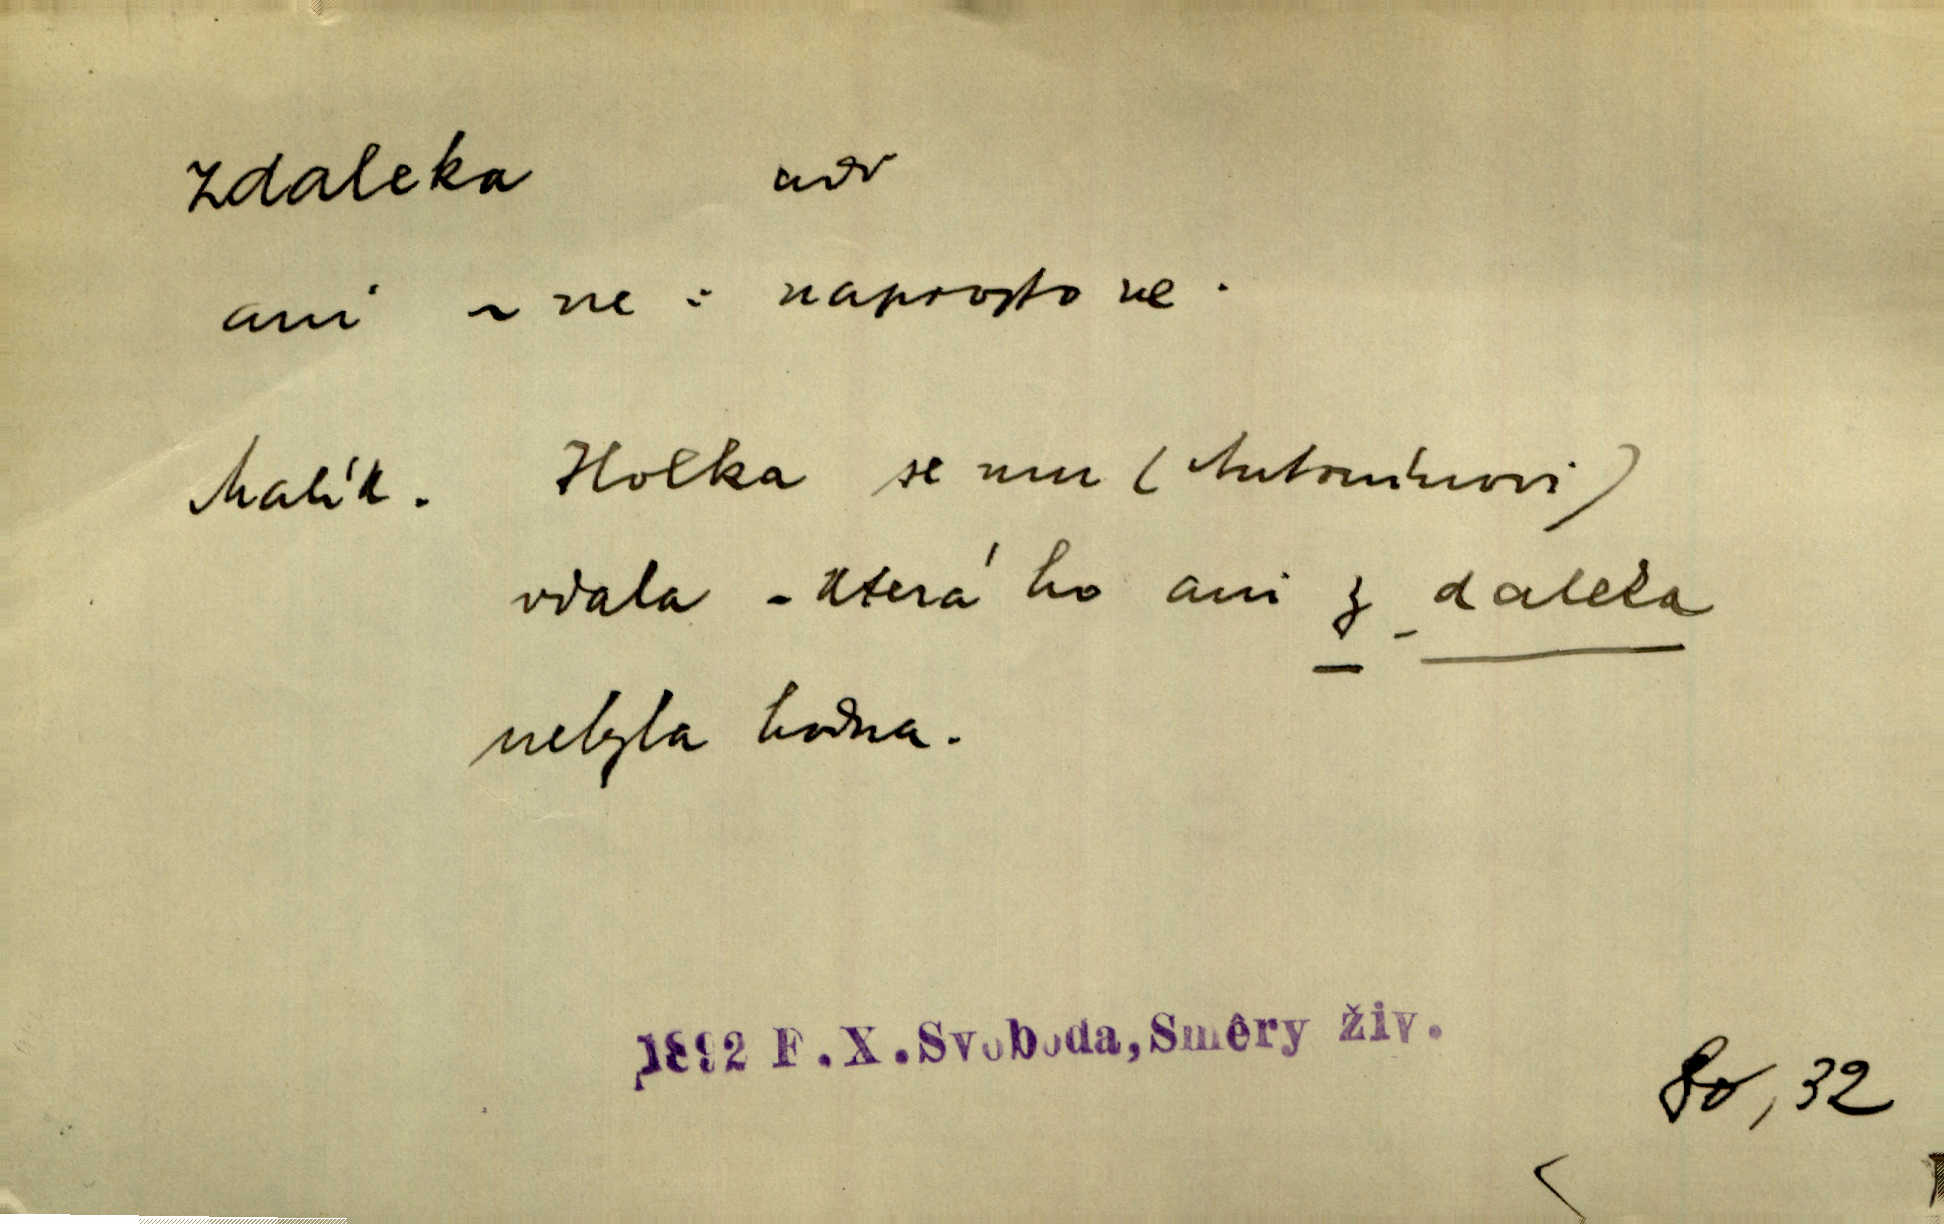 zdaleka adv
ani ~ ne : naprosto ne.
Malík. Holka se mu (Antonínovi)
vdala - která ho ani z daleka
nebyla hodna.
1892 F.X.Svoboda,Směry živ.
80,32